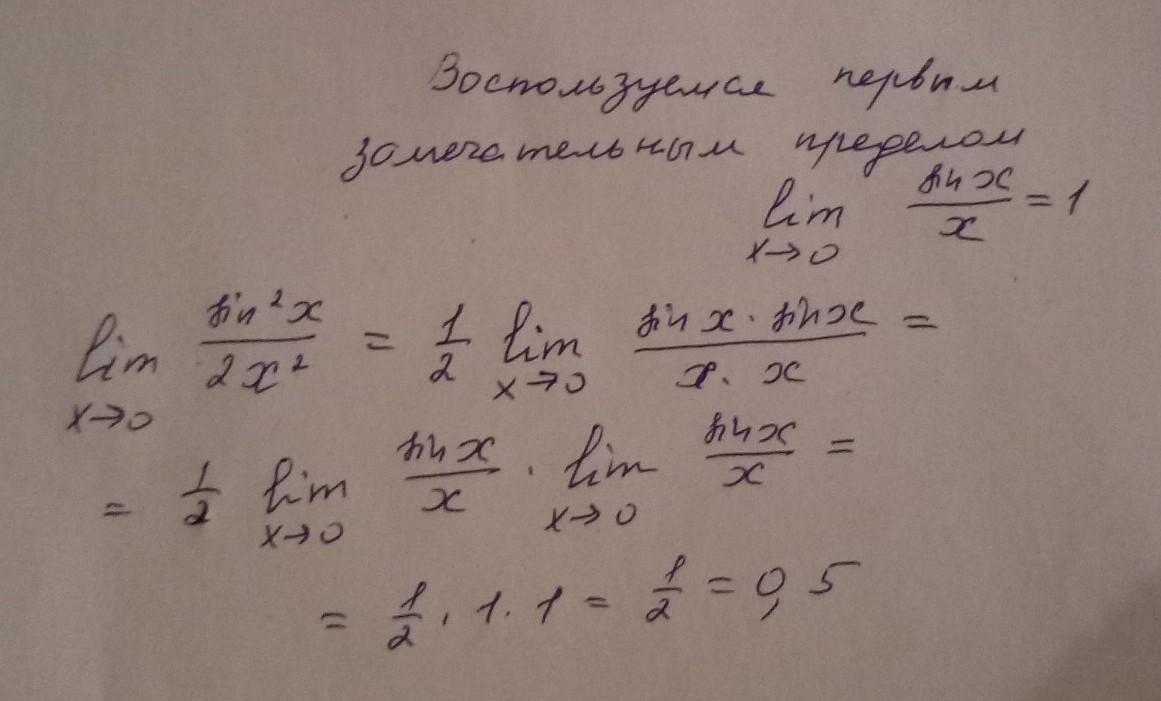 Воспользуемся первым
замечательным пределом
lim x→0 sin x / x = 1
lim x→0 sin²x / 2x² = 1/2 lim x→0 sin x · sin x / x · x =
= 1/2 lim x→0 sin x / x · lim x→0 sin x / x =
= 1/2 · 1 · 1 = 1/2 = 0,5